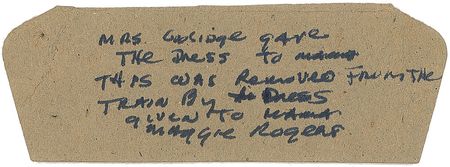 MRS Coolidge gave
THE DRESS TO MAMA
THIS WAS REMOVED FROM THE
TRAIN BY DRESS
GIVEN TO MAMA
MAGGIE ROGERS